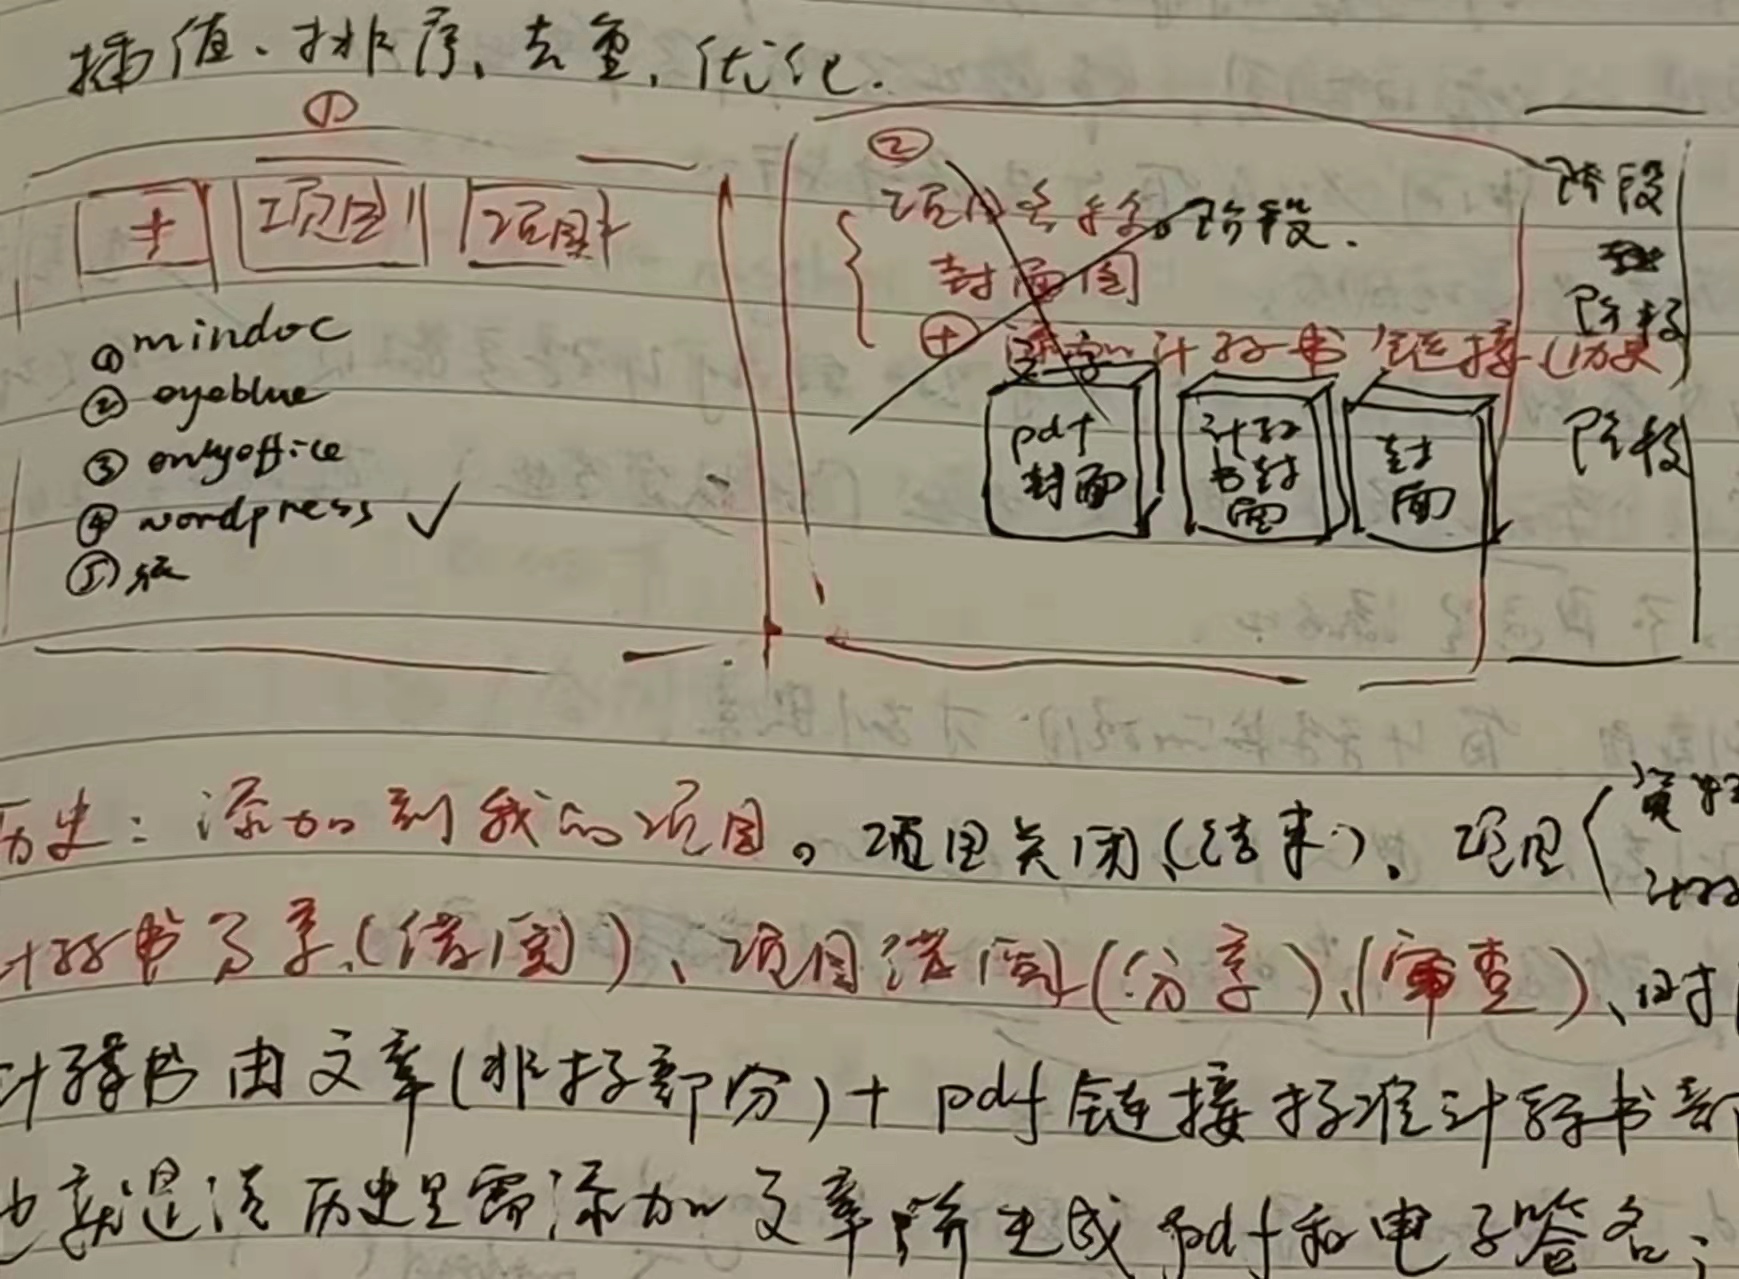 插值、排序、去重、优化.
①
+ 项目 项目
① mindoc
② eyeblue
③ onlyoffice
④ wordpress ✓
⑤
②
项目名称。阶段.
封面图
⊕ 添加计算书链接(历史)
pdf封面
计算书封面
封面
阶段
阶段
阶段
历史：添加到我的项目。项目关闭(结束)、项目 资料 计算
计算书分享(借阅)、项目借阅(分享)、(审查)、时
计算书由文章(非标部分)+pdf链接标准计算书部
也就是说历史里需添加文章并生成pdf和电子签名；